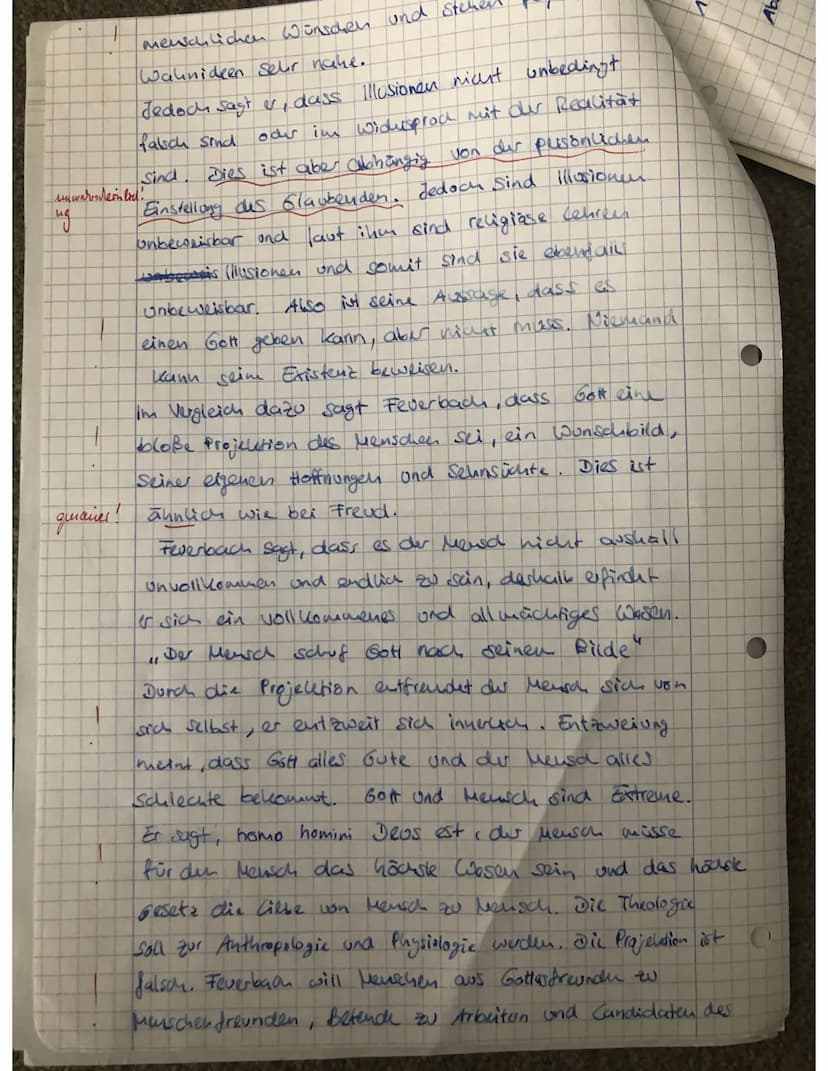 menschlichen Wünschen und stehen
Wahnideen sehr nahe.
Jedoch sagt er, dass Illusionen nicht unbedingt
falsch sind oder im Widerspruch mit der Realität
sind. Dies ist aber abhängig von der persönlichen
Einstellung des Glaubenden. Jedoch sind Illusionen
unbeweisbar und laut ihm sind religiöse Lehren
Illusionen und somit sind sie ebenfalls
unbeweisbar. Also ist seine Aussage, dass es
einen Gott geben kann, aber nicht muss. Niemand
kann seine Existenz beweisen.
Im Vergleich dazu sagt Feuerbach, dass Gott eine
bloße Projektion des Menschen sei, ein Wunschbild,
seiner eigenen Hoffnungen und Sehnsüchte. Dies ist
genauer! ähnlich wie bei Freud.
Feuerbach sagt, dass es der Mensch nicht aushält
unvollkommen und endlich zu sein, deshalb erfindet
er sich ein vollkommenes und allmächtiges Wesen.
„Der Mensch schuf Gott nach seinem Bilde"
Durch die Projektion entfremdet der Mensch sich von
sich selbst, er entzweit sich innerlich. Entzweiung
meint, dass Gott alles Gute und der Mensch alles
Schlechte bekommt. Gott und Mensch sind Extreme.
Er sagt, homo homini Deus est, der Mensch müsse
für den Mensch das höchste Wesen sein und das höchste
Gesetz die Liebe von Mensch zu Mensch. Die Theologie
soll zur Anthropologie und Physiologie werden. Die Projektion ist
falsch. Feuerbach will Menschen aus Gottesfreunden zu
Menschenfreunden, Betende zu Arbeiten und Candidaten des